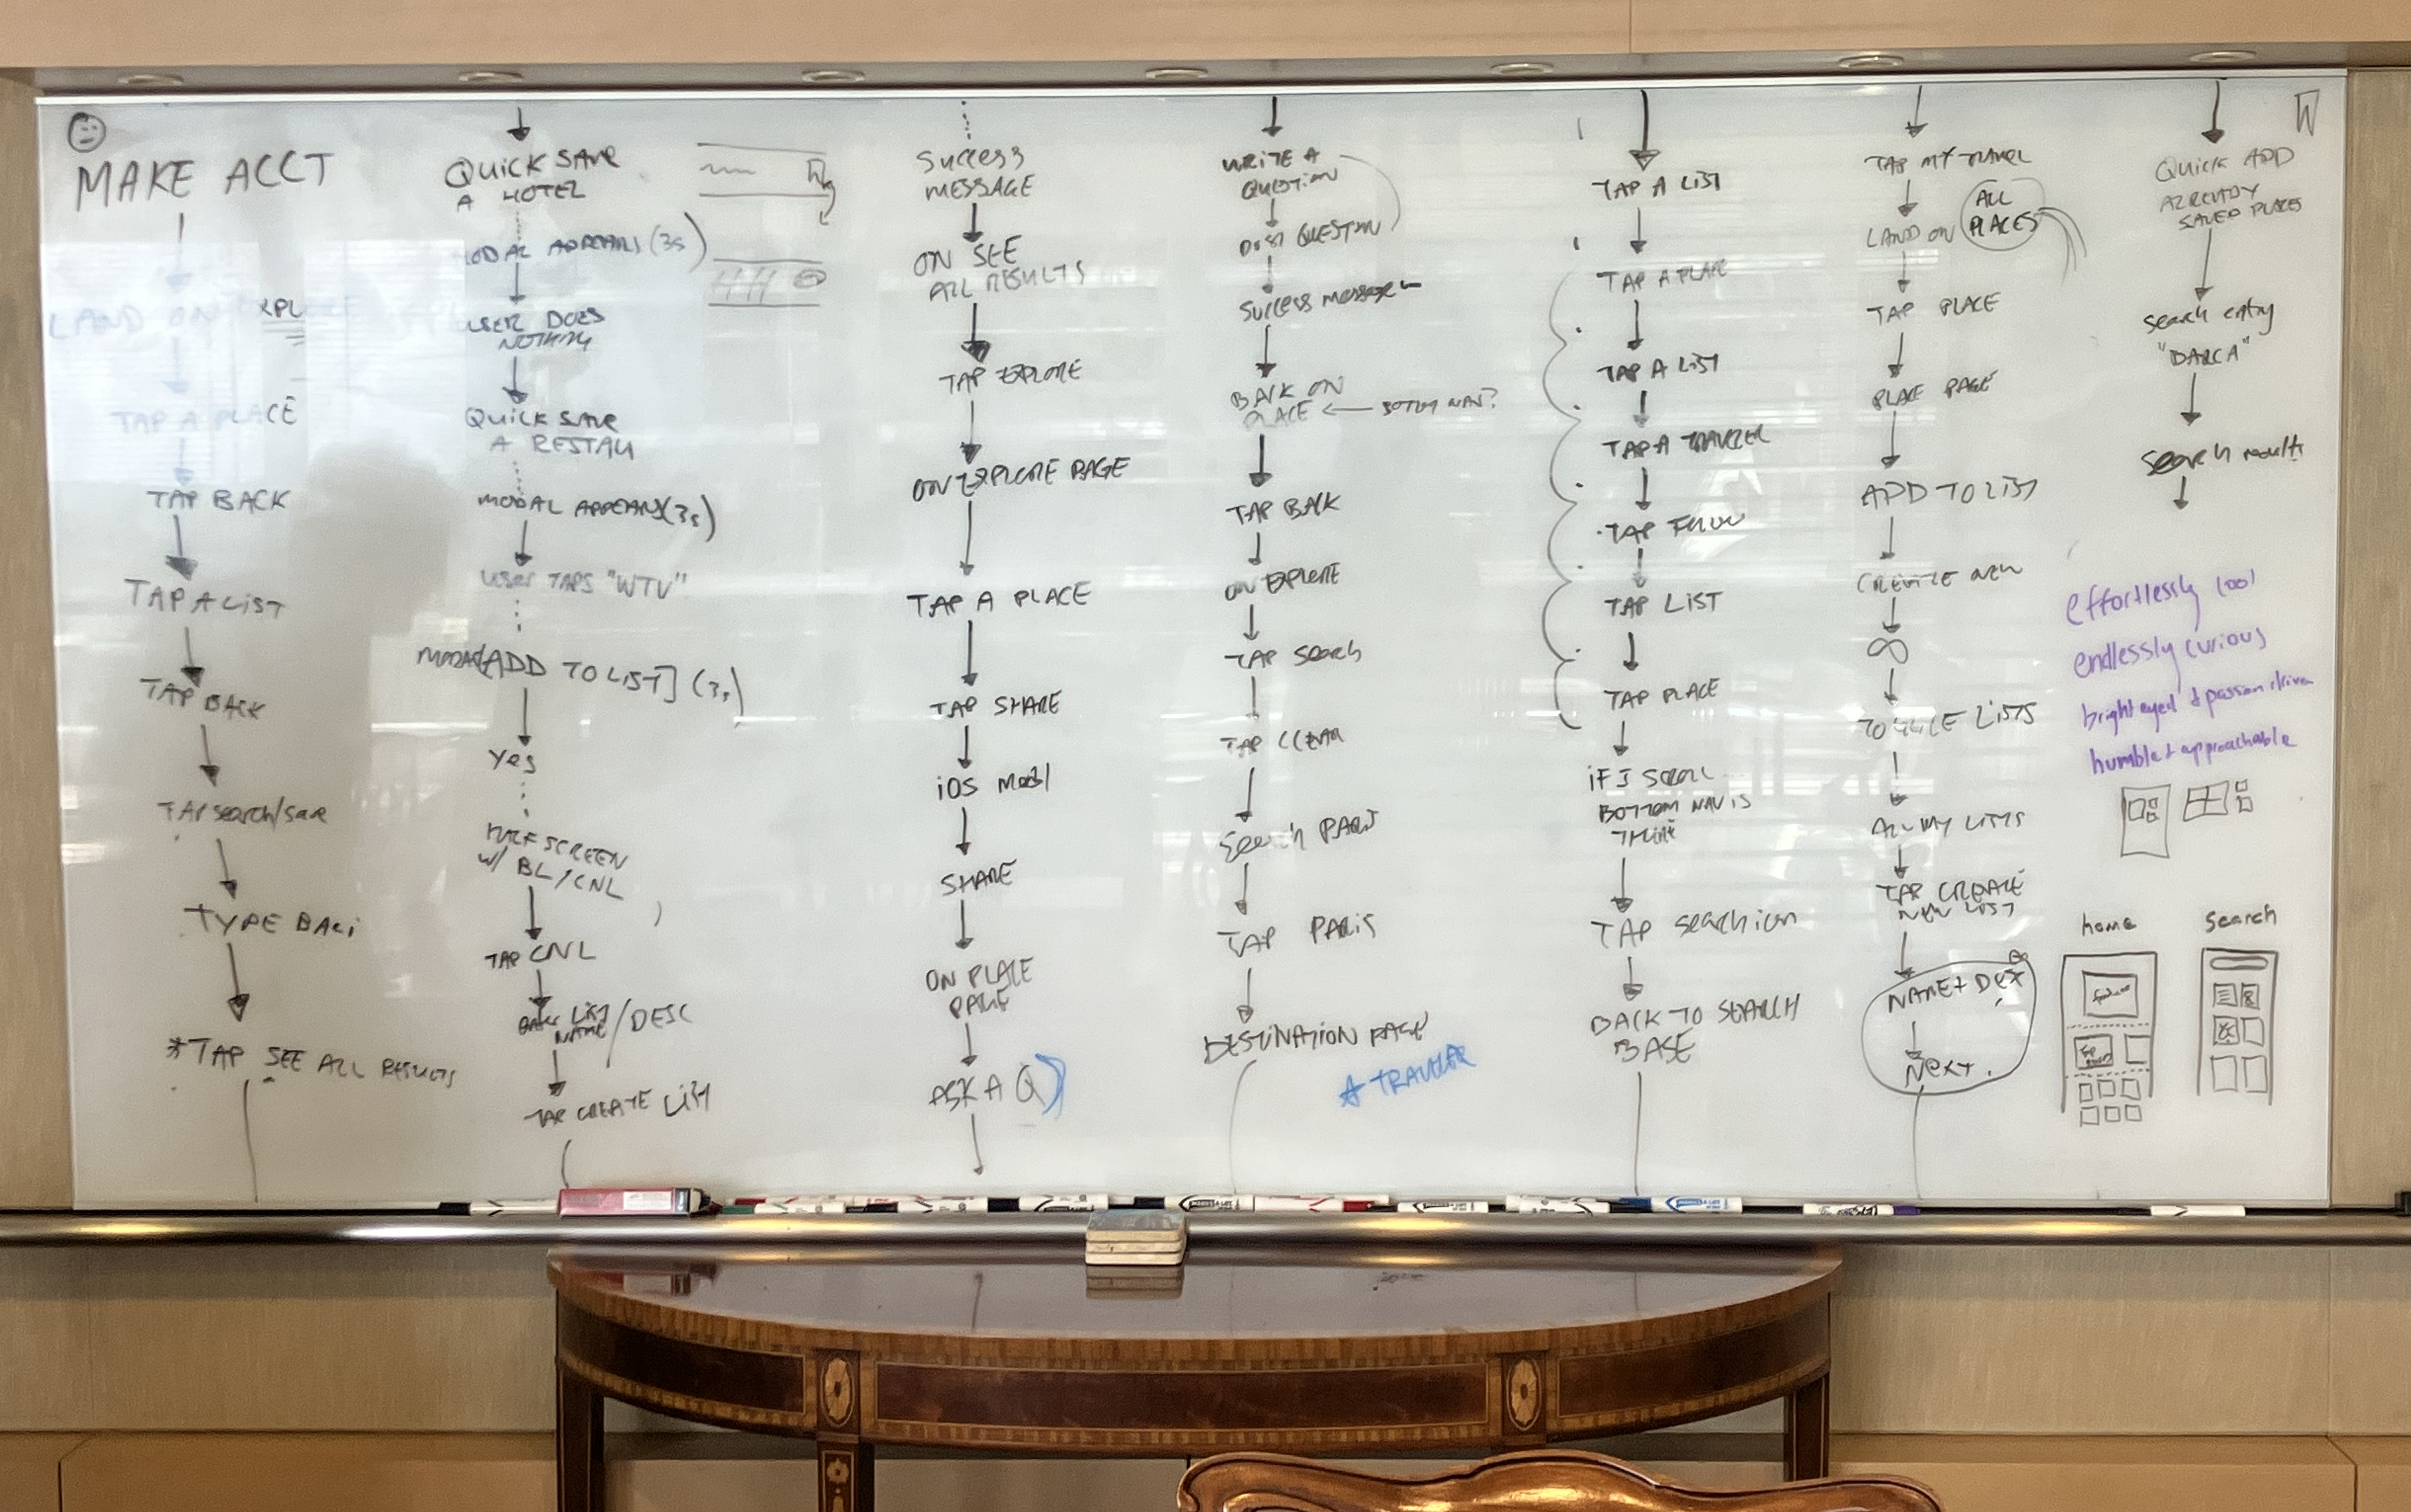 MAKE ACCT
LAND ON XPL
TAP A PLACE
TAP BACK
TAP A LIST
TAP BACK
TAP search/save
TYPE BALI
*TAP SEE ALL RESULTS
QUICK SAVE
A HOTEL
MODAL APPEARS (3s)
USER DOES
NOTHING
QUICK SAVE
A RESTAU
MODAL APPEARS (3s)
user TAPS "WTV"
[ADD TO LIST] (3s)
Yes
HALF SCREEN
w/ BL/CNL
TAP CNL
LIST
NAME/DESC
TAP CREATE LIST
Success
MESSAGE
ON SEE
ALL RESULTS
TAP EXPLORE
ON EXPLORE PAGE
TAP A PLACE
TAP SHARE
iOS modl
SHARE
ON PLACE
PAGE
ASK A Q
WRITE A
QUESTION
POST QUESTION
Success message
BACK ON
PLACE ← BOTTOM NAV?
TAP BACK
ON EXPLORE
TAP search
TAP CLEAR
Search PARIS
TAP PARIS
DESTINATION PAGE
TRAVELER
TAP A LIST
TAP A PLACE
TAP A LIST
TAP A TRAVELER
TAP FOLLOW
TAP LIST
TAP PLACE
IF I SCROLL
BOTTOM NAV IS
TAP search icon
BACK TO SEARCH
BASE
TAP MY TRAVEL
LAND ON ALL PLACES
TAP PLACE
PLACE PAGE
ADD TO LIST
CREATE NEW
∞
TOGGLE LISTS
ALL MY LISTS
TAP CREATE
NEW LIST
NAME + DEX
NEXT.
QUICK ADD
ALREADY
SAVED PLACES
Search entry
"DARCA"
Search results
effortlessly cool
endlessly curious
bright eyed + passion driven
humble + approachable
home
search